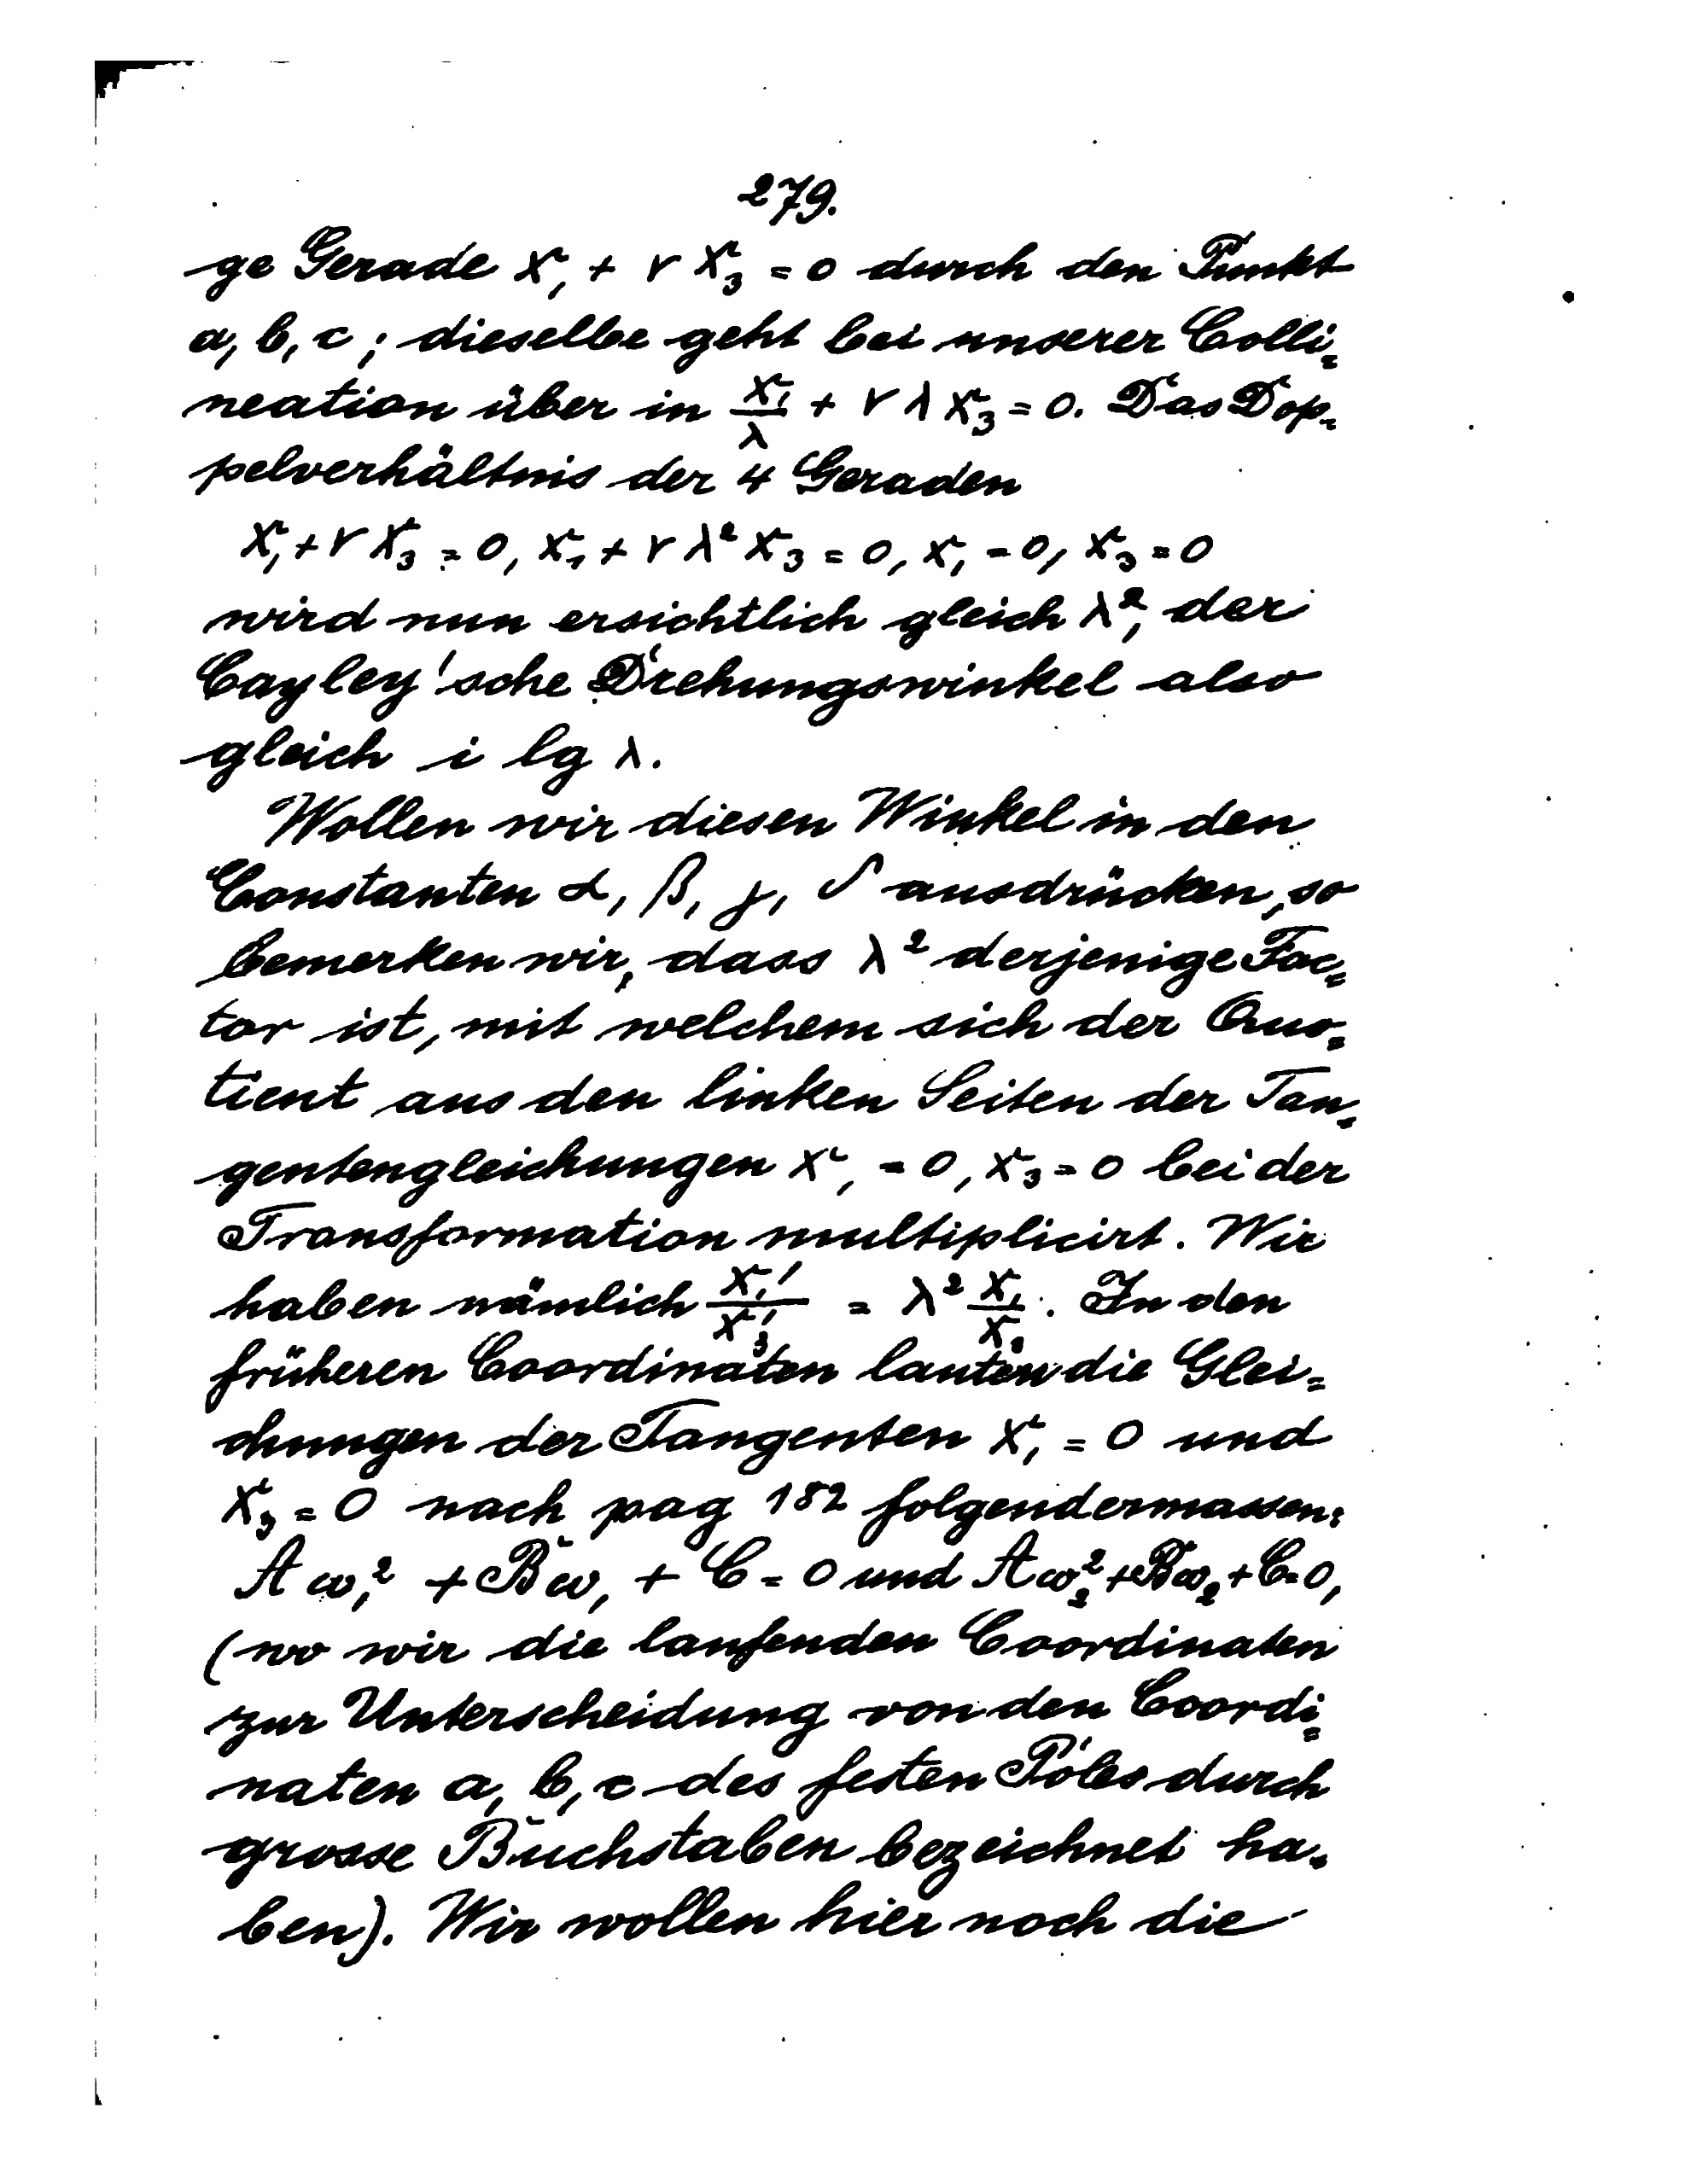 279.
ge Gerade x₁ + r x₃ = 0 durch den Punkt
a, b, c; dieselbe geht bei unserer Colli=
neation über in x₁/λ + r λ x₃ = 0. Das Dop=
pelverhältnis der 4 Geraden
x₁ + r x₃ = 0, x₁ + r λ² x₃ = 0, x₁ = 0, x₃ = 0
wird nun ersichtlich gleich λ², der
Cayley'sche Drehungswinkel also
gleich i lg λ.
Wollen wir diesen Winkel in den
Constanten α, β, γ, δ ausdrücken, so
bemerken wir, dass λ² derjenige Fac=
tor ist, mit welchem sich der Quo=
tient aus den linken Seiten der Tan=
gentengleichungen x₁ = 0, x₃ = 0 bei der
Transformation multiplicirt. Wir
haben nämlich x₁'/x₃' = λ² x₁/x₃. In den
früheren Coordinaten lauten die Glei=
chungen der Tangenten x₁ = 0 und
x₃ = 0 nach pag 182 folgendermassen:
A ω₁² + B ω₁ + C = 0 und A ω₂² + B ω₂ + C = 0,
(wo wir die laufenden Coordinaten
zur Unterscheidung von den Coordi=
naten a, b, c des festen Poles durch
grosse Buchstaben bezeichnet ha=
ben). Wir wollen hier noch die